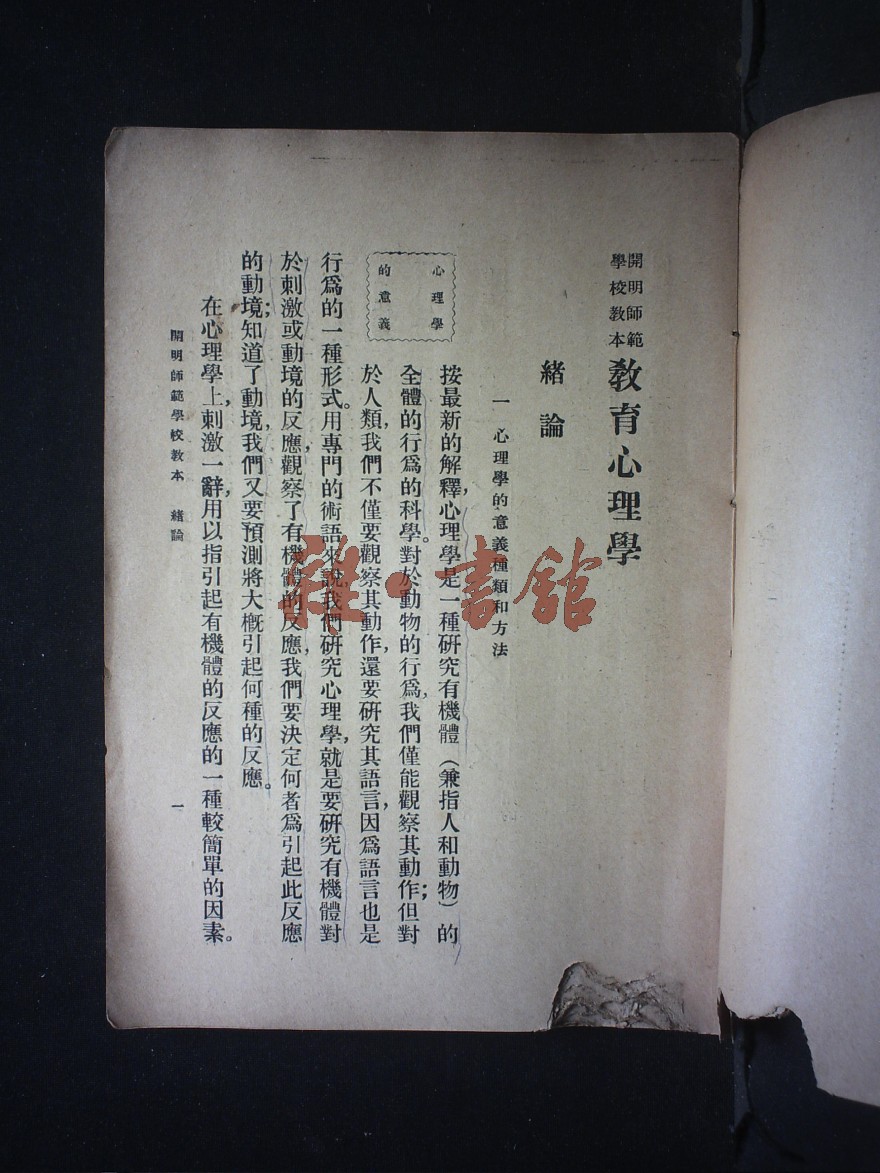 開明師範
學校教本
教育心理學
緒論
一 心理學的意義種類和方法
心理學
的意義
按最新的解釋，心理學是一種研究有機體（兼指人和動物）的
全體的行爲的科學。對於動物的行爲，我們僅能觀察其動作；但對
於人類，我們不僅要觀察其動作，還要研究其語言，因爲語言也是
行爲的一種形式。用專門的術語來說，我們研究心理學，就是要研究有機體對
於刺激或動境的反應，觀察了有機體的反應，我們要決定何者爲引起此反應
的動境；知道了動境，我們又要預測將大概引起何種的反應。
在心理學上，刺激一辭，用以指引起有機體的反應的一種較簡單的因素。
開明師範學校教本 緒論
一